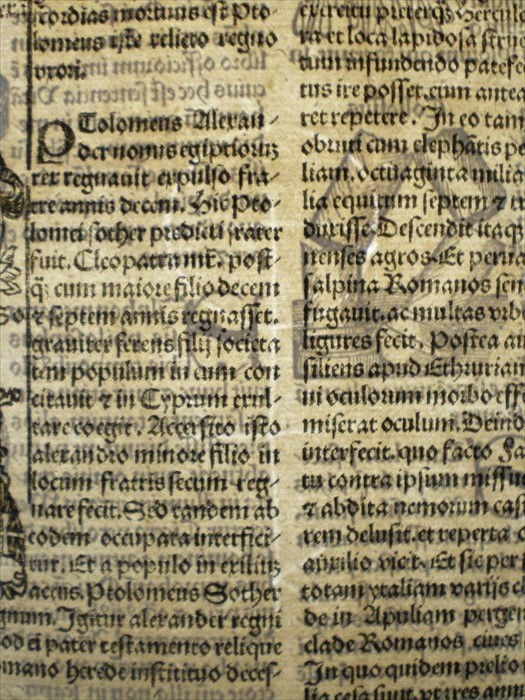 cordias mortuus est Pto-
lomeus iste relicto regno
vxori.
PTolomeus Alexan-
der nonus egiptiorum
rex regnauit expulso fra-
tre annis decem. His Pto-
lomei sother predicti frater
fuit. Cleopatra
cum maiore filio decem
et septem annis regnasset.
grauiter ferens filij societa
tem populum in eum con
citauit et in Cyprum exul-
tare coegit. Accersito isto
alexandro minore filio in
locum fratris secum reg-
nare fecit. Sed tandem ab
eodem occupata interfici-
tur. Et a populo in exilium
actus. Ptolomeus Sother
Igitur alexander regni
ei pater testamento relique
herede instituto deces-
exercitu preterque hercul
ra et loca lapidosa
tum infundendo patefec
tus ire posset. cum antea
ret repetere. In eo tam
obruti cum elephantis pe
liam. octuaginta milia
lia equitum septem et tr
duxisse. Descendit itaq
nenses agros. Et perua
salpina Romanos
fugauit. ac multas vrbe
ligures fecit. Postea au
siliens apud Ethuriam
ui oculorum morbo effe
miserat oculum. Deind
interfecit. quo facto
tu contra ipsum missus
et abdita nemorum cast
rem delusit. et reperta
auxilio vicit. Et sic per
totam ytaliam varijs
de in Apuliam pergen
clade Romanos
In quo quidem prelio
lia cesa sunt. vt tres ann